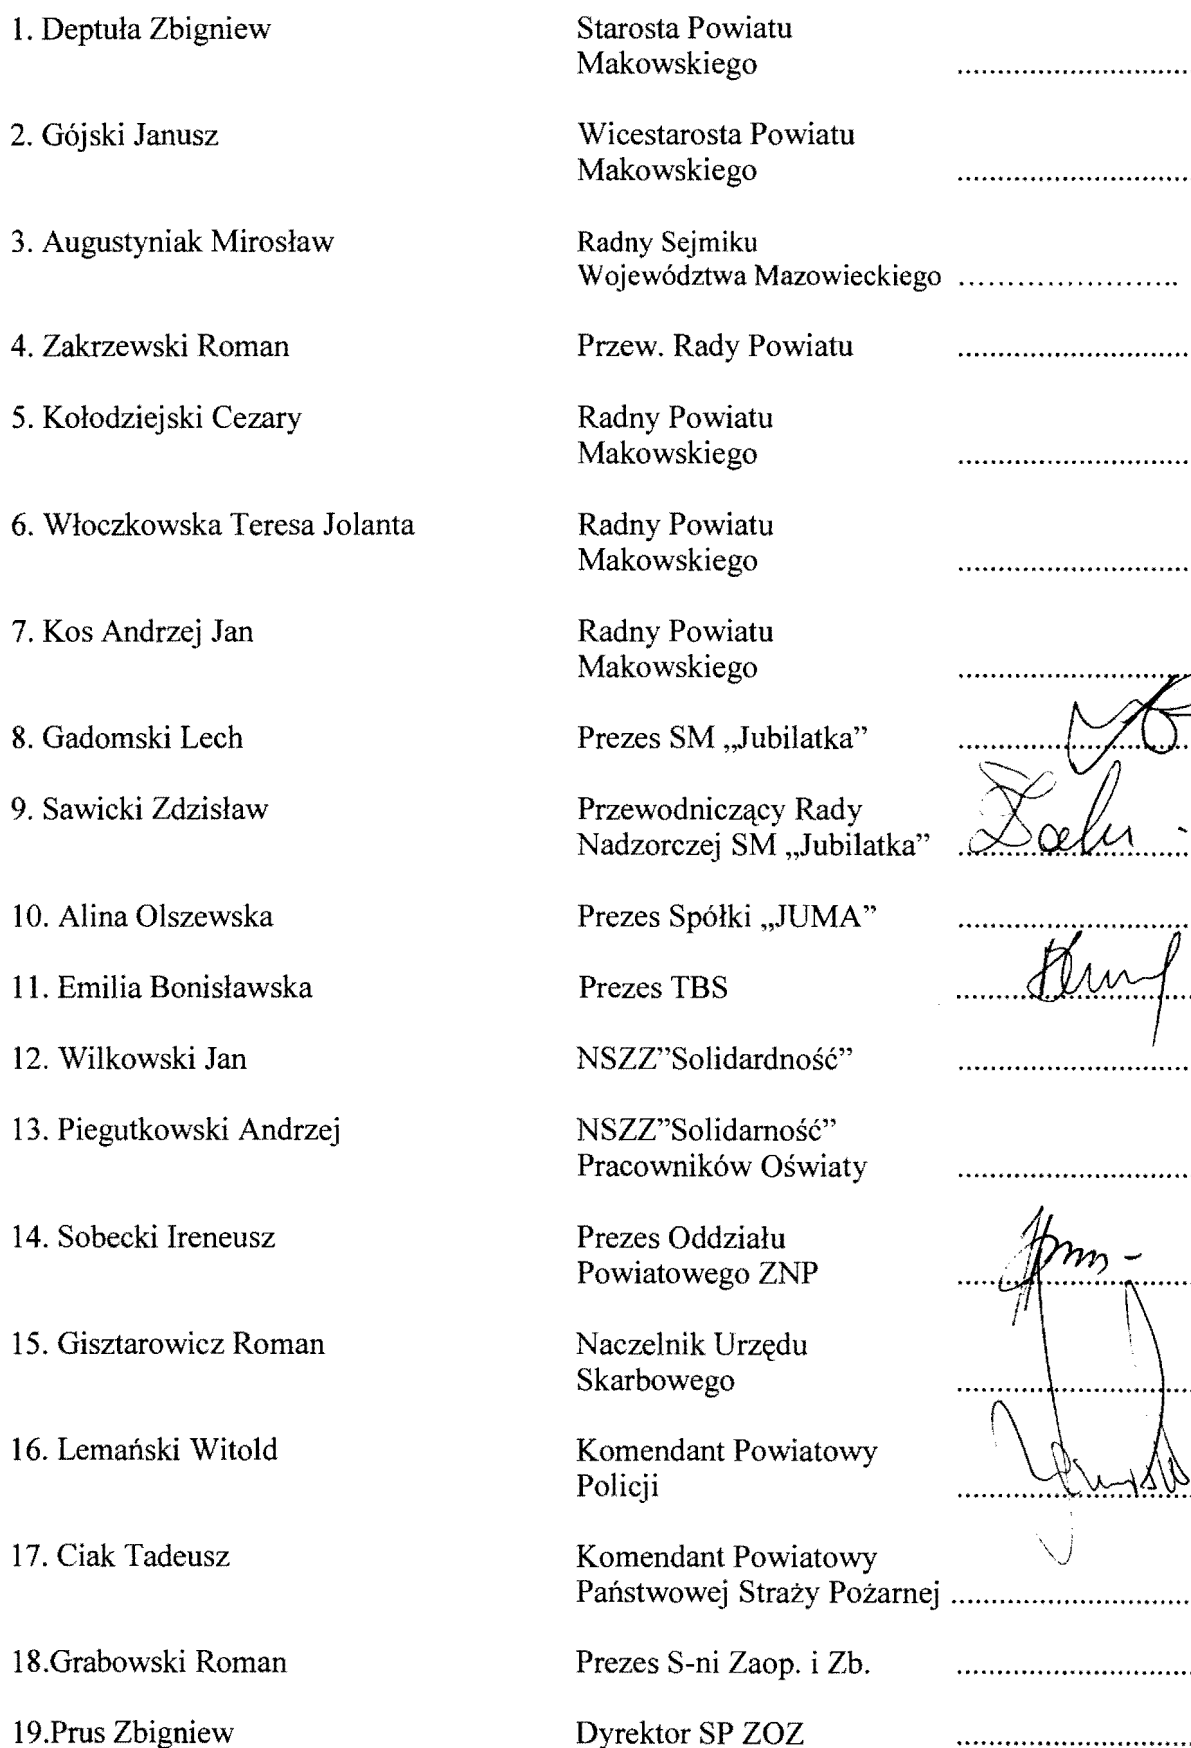 1. Deptuła Zbigniew Starosta Powiatu
Makowskiego ............................
2. Gójski Janusz Wicestarosta Powiatu
Makowskiego ............................
3. Augustyniak Mirosław Radny Sejmiku
Województwa Mazowieckiego ........................
4. Zakrzewski Roman Przew. Rady Powiatu ............................
5. Kołodziejski Cezary Radny Powiatu
Makowskiego ............................
6. Włoczkowska Teresa Jolanta Radny Powiatu
Makowskiego ............................
7. Kos Andrzej Jan Radny Powiatu
Makowskiego ............................
8. Gadomski Lech Prezes SM „Jubilatka” ............................
9. Sawicki Zdzisław Przewodniczący Rady
Nadzorczej SM „Jubilatka” ............................
10. Alina Olszewska Prezes Spółki „JUMA” ............................
11. Emilia Bonisławska Prezes TBS ............................
12. Wilkowski Jan NSZZ”Solidardność” ............................
13. Piegutkowski Andrzej NSZZ”Solidarność”
Pracowników Oświaty ............................
14. Sobecki Ireneusz Prezes Oddziału
Powiatowego ZNP ............................
15. Gisztarowicz Roman Naczelnik Urzędu
Skarbowego ............................
16. Lemański Witold Komendant Powiatowy
Policji ............................
17. Ciak Tadeusz Komendant Powiatowy
Państwowej Straży Pożarnej ............................
18.Grabowski Roman Prezes S-ni Zaop. i Zb. ............................
19.Prus Zbigniew Dyrektor SP ZOZ ............................